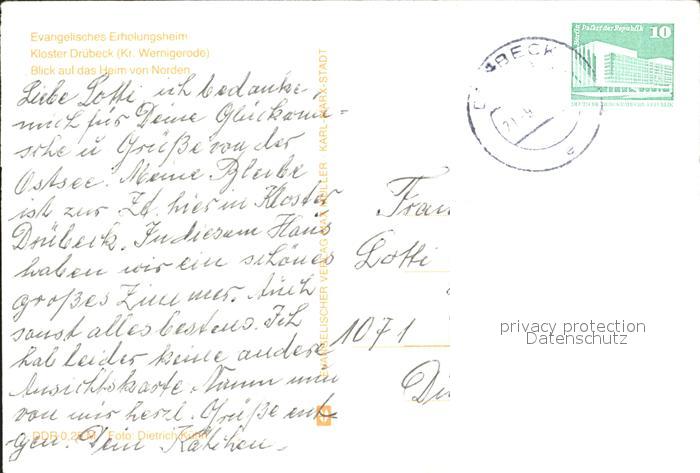 Evangelisches Erholungsheim
Kloster Drübeck (Kr. Wernigerode)
Blick auf das Heim von Norden
Liebe Lotti ich bedanke
mich für Deine Glückwün-
sche u Grüße von der
Ostsee. Meine Bleibe
ist zur Zt. hier in Kloster
Drübeck. In diesem Haus
haben wir ein schönes
großes Zimmer. Auch
sonst alles bestens. Ich
hab leider keine andere
Ansichtskarte. Nimm nun
von mir herzl. Grüße ent-
gegen. Dein Käthchen.
DDR 0,25 M Foto: Dietrich
EVANGELISCHER VERLAG MAX MÜLLER KARL-MARX-STADT
Berlin Palast der Republik
10
DEUTSCHE DEMOKRATISCHE REPUBLIK
Frau
Lotti
1071
privacy protection
Datenschutz